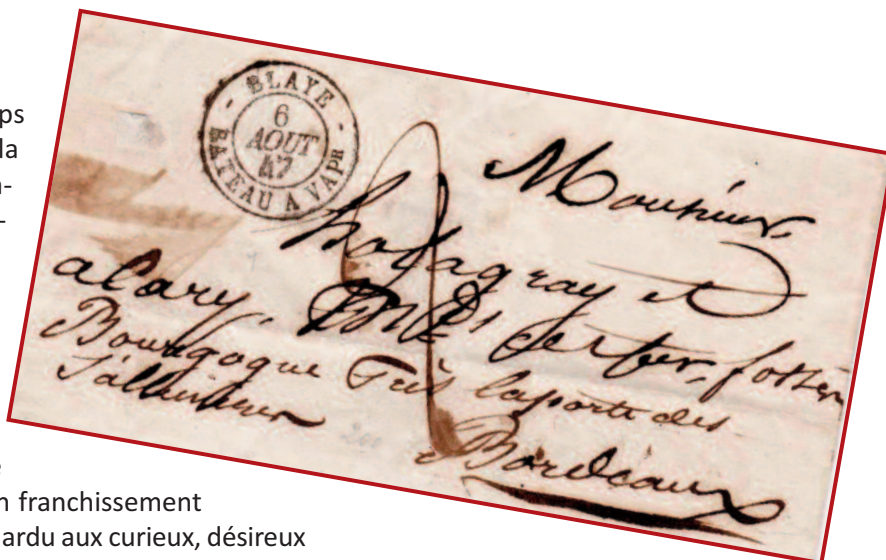 ps
la
n-
-
BLAYE
6
AOUT
47
BATEAU A VAPR
Monsieur
Lafagray et
alary, Md de fer, fossés
Bourgogne Près la porte des
Salinieres
Bordeaux
e
n franchissement
ardu aux curieux, désireux